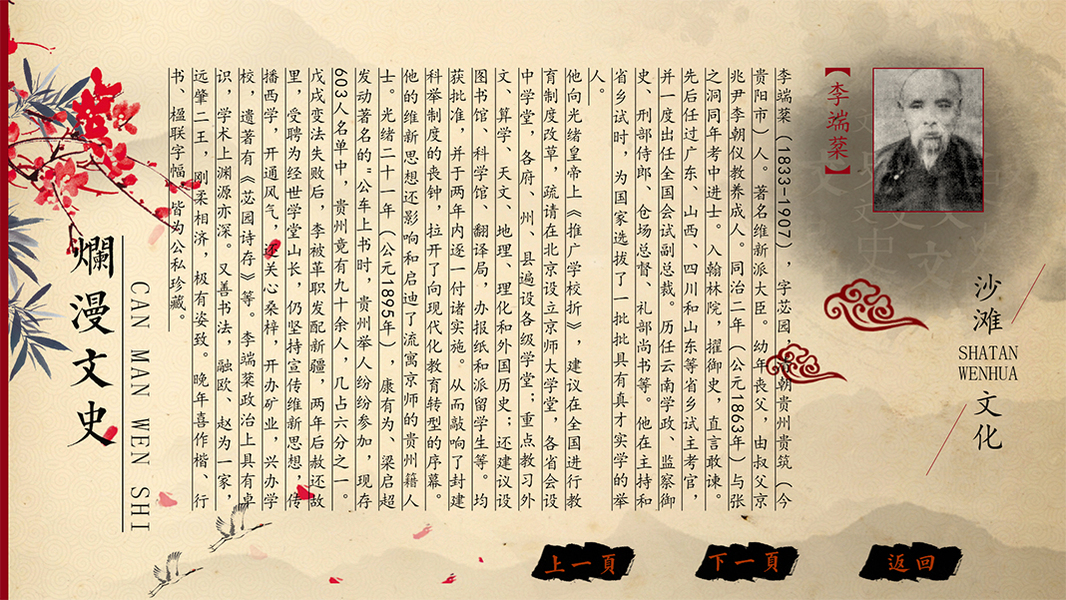 沙滩文化
SHATAN
WENHUA
【李端棻】
李端棻（1833-1907），字苾园，清朝贵州贵筑（今
贵阳市）人。著名维新派大臣。幼年丧父，由叔父京
兆尹李朝仪教养成人。同治二年（公元1863年）与张
之洞同年考中进士。人翰林院，擢御史，直言敢谏。
先后任过广东、山西、四川和山东等省乡试主考官，
并一度出任全国会试副总裁。历任云南学政、监察御
史、刑部侍郎、仓场总督、礼部尚书等。他在主持和
省乡试时，为国家选拔了一批批具有真才实学的举
人。
他向光绪皇帝上《推广学校折》，建议在全国进行教
育制度改草，疏请在北京设立京师大学堂，各省会设
中学堂，各府、州、县遍设各级学堂；重点教习外
文、算学、天文、地理、理化和外国历史；还建议设
图书馆、科学馆、翻译局，办报纸和派留学生等。均
获批准，并于两年内逐一付诸实施。从而敲响了封建
科举制度的丧钟，拉开了向现代化教育转型的序幕。
他的维新思想还影响和启迪了流寓京师的贵州籍人
士。光绪二十一年（公元1895年），康有为、梁启超
发动著名的“公车上书时，贵州举人纷纷参加，现存
603人名单中，贵州竟有九十余人，几占六分之一。
戊戌变法失败后，李被革职发配新疆，两年后赦还故
里，受聘为经世学堂山长，仍坚持宣传维新思想，传
播西学，开通风气，还关心桑梓，开办矿业，兴办学
校，遗著有《苾园诗存》等。李端棻政治上具有卓
识，学术上渊源亦深。又善书法，融欧、赵为一家，
远肇二王，刚柔相济，极有姿致。晚年喜作楷、行
书、楹联字幅，皆为公私珍藏。
CAN MAN WEN SHI
爛漫文史
上一頁
下一頁
返回